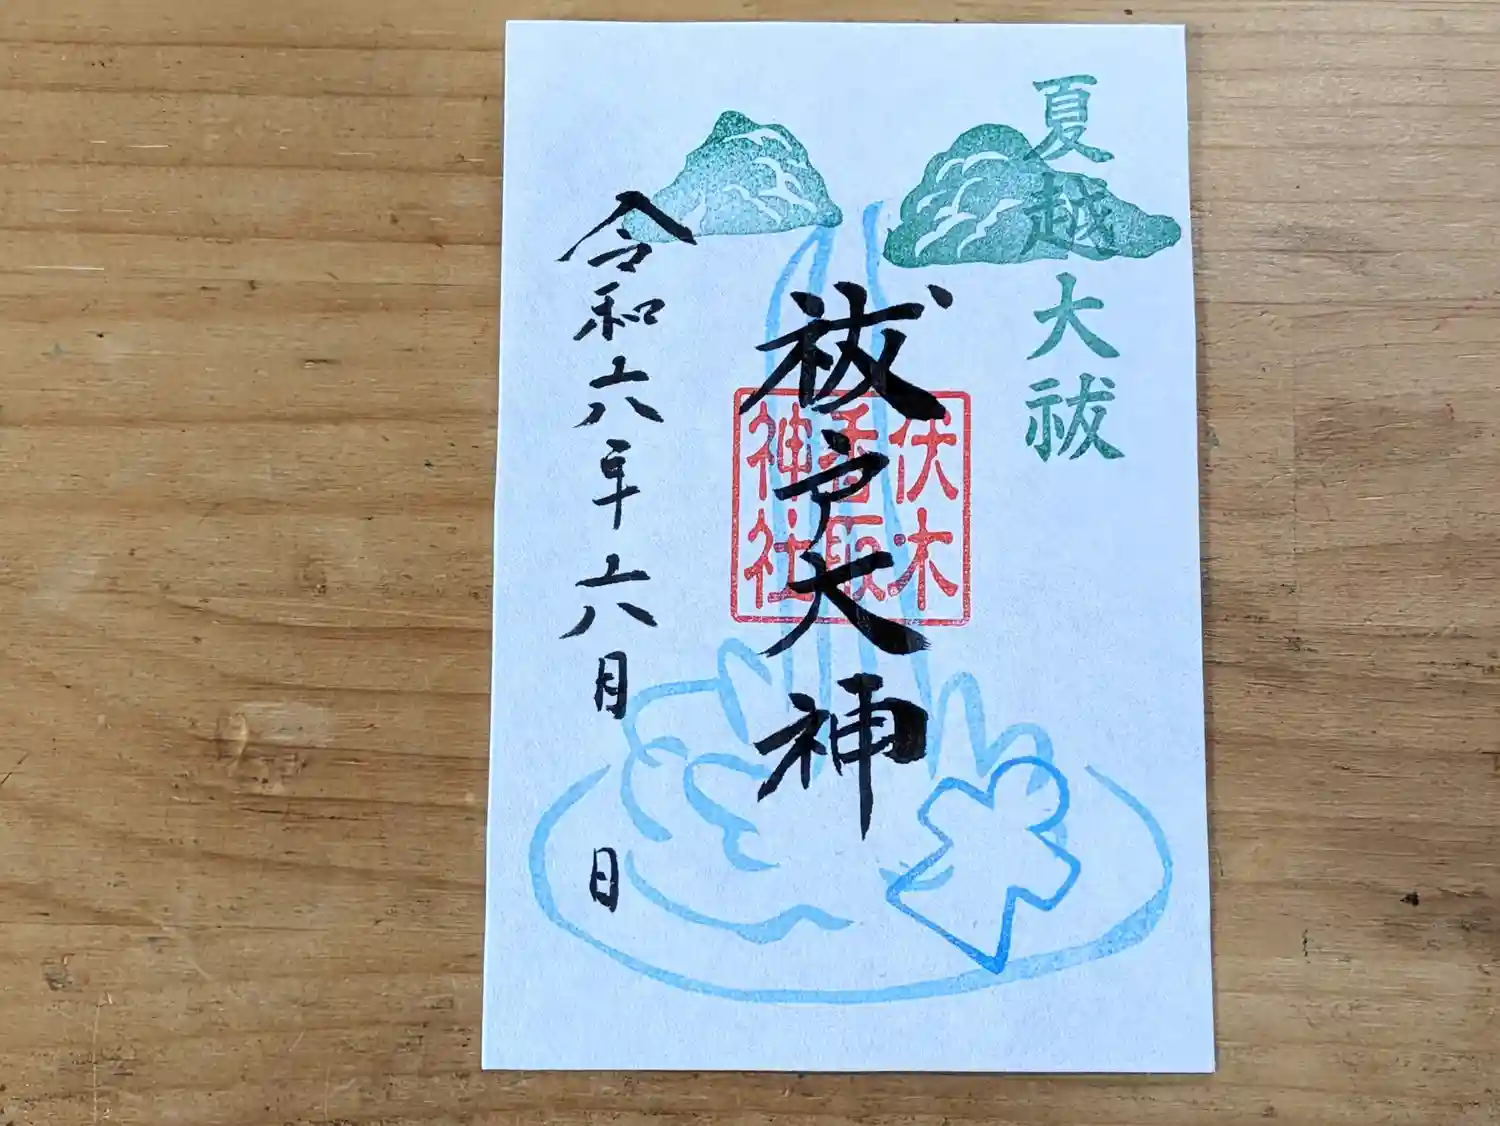 夏越大祓
祓戸大神
伏木
香取
神社
令和六年六月 日